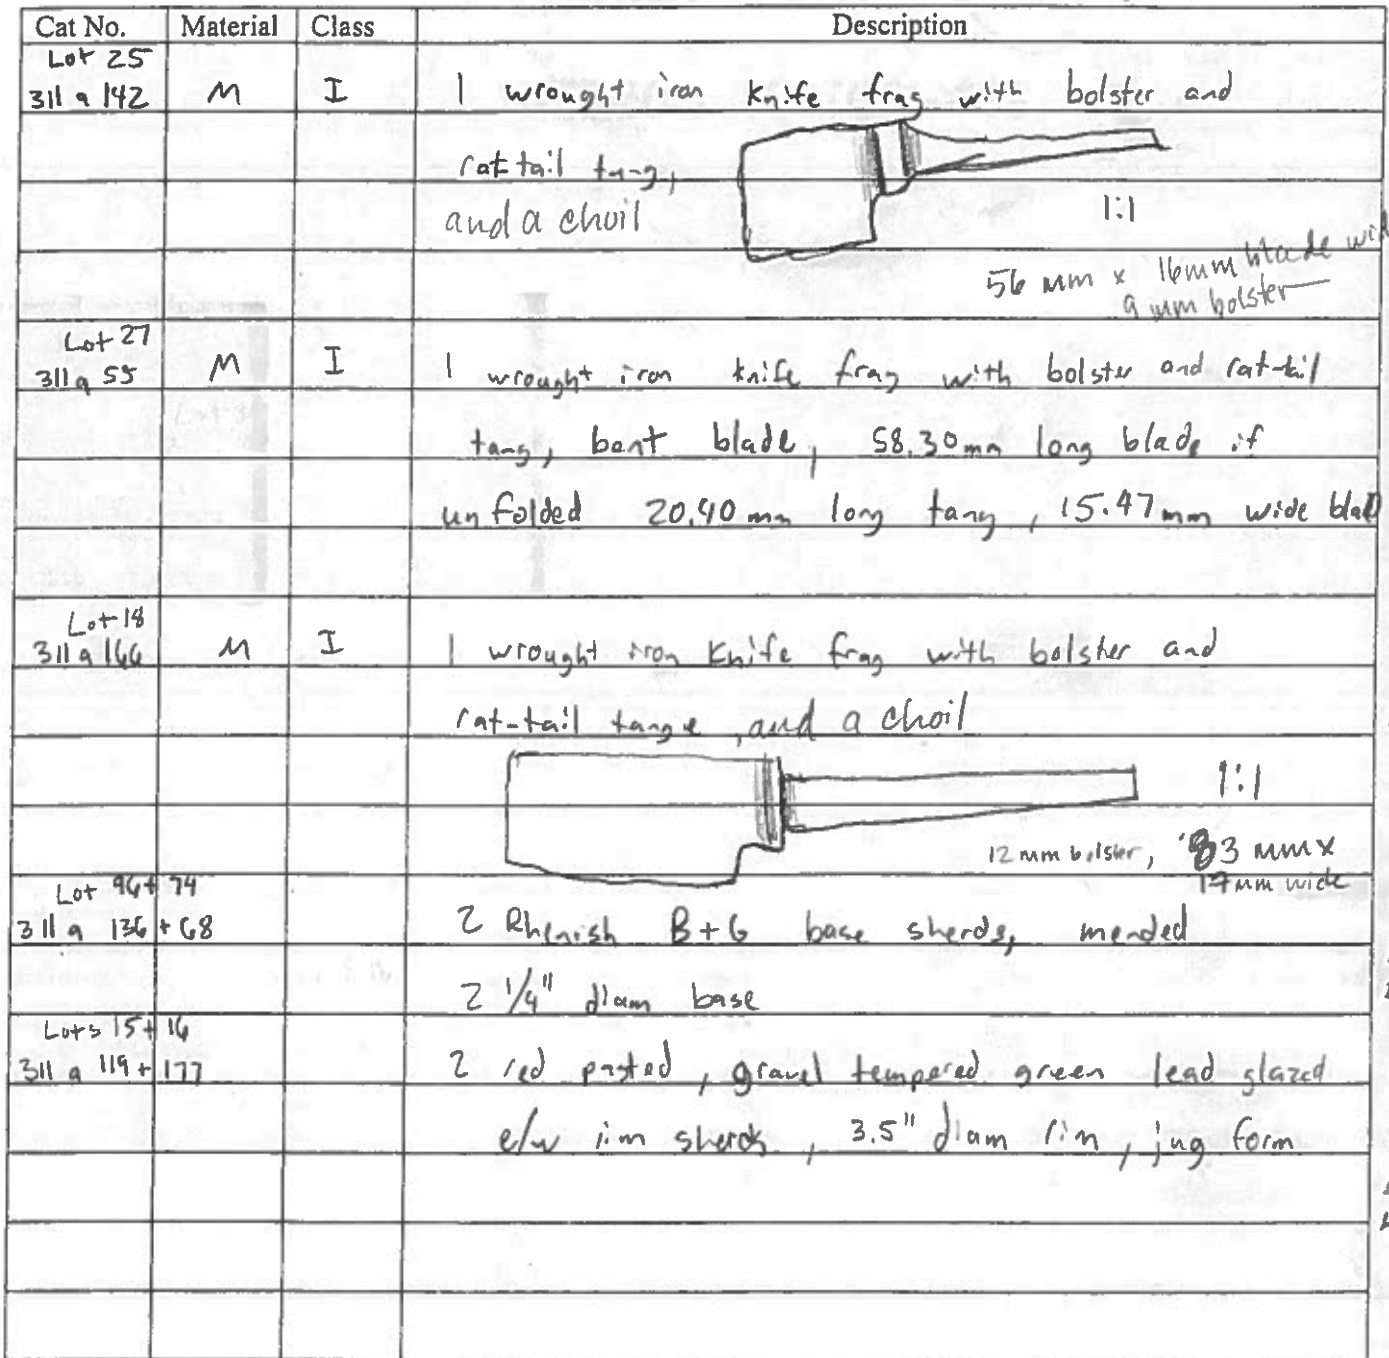 Cat No. Material Class Description
Lot 25
311 a 142 M I 1 wrought iron knife frag with bolster and
rat tail tang,
and a choil
1:1
56 mm x 16mm blade wi
9 mm bolster
Lot 27
311 a 55 M I 1 wrought iron knife frag with bolster and rat-tail
tang, bent blade, 58.30mm long blade if
unfolded 20.40 mm long tang, 15.47 mm wide blad
Lot 18
311 a 166 M I 1 wrought iron knife frag with bolster and
rat-tail tange, and a choil
1:1
12 mm bolster, 83 mm x
17 mm wide
Lot 96 + 74
311 a 136 + 68 2 Rhenish B+G base sherds, mended
2 1/4" diam base
Lots 15 + 16
311 a 119 + 177 2 red pasted, gravel tempered green lead glazed
e/w rim sherds, 3.5" diam rim, jug form